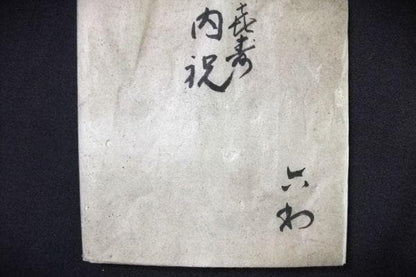 㐂寿
内祝
六和